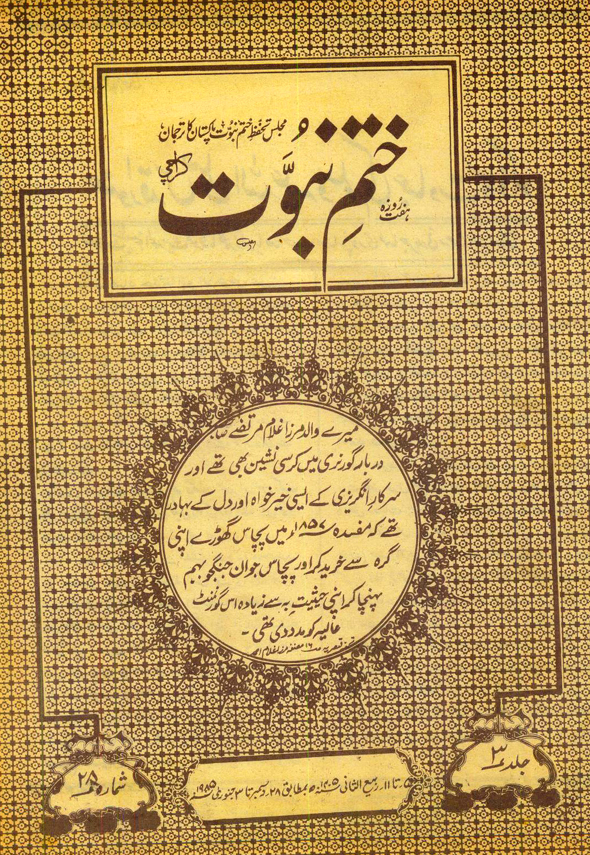 مجلس تحفظ ختم نبوت پاکستان کا ترجمان
ہفت روزہ
ختمِ نبوّت
کراچی
میرے والد مرزا غلام مرتضےٰ صاحب
دربار گورنری میں کرسی نشین بھی تھے اور
سرکار انگریزی کے ایسے خیر خواہ اور دل کے بہادر
تھے کہ مفسدہ ۱۸۵۷ء میں پچاس گھوڑے اپنی
گرہ سے خرید کر اور پچاس جوان جنگجو بہم
پہنچا کر اپنی حیثیت سے زیادہ اس گورنمنٹ
عالیہ کو مدد دی تھی ۔
جلد ۳
۵ تا ۱۱۔ ربیع الثانی ۱۴۰۵ھ بمطابق ۲۸ دسمبر تا ۳ جنوری ۱۹۸۵ء
شمارہ ۲۸